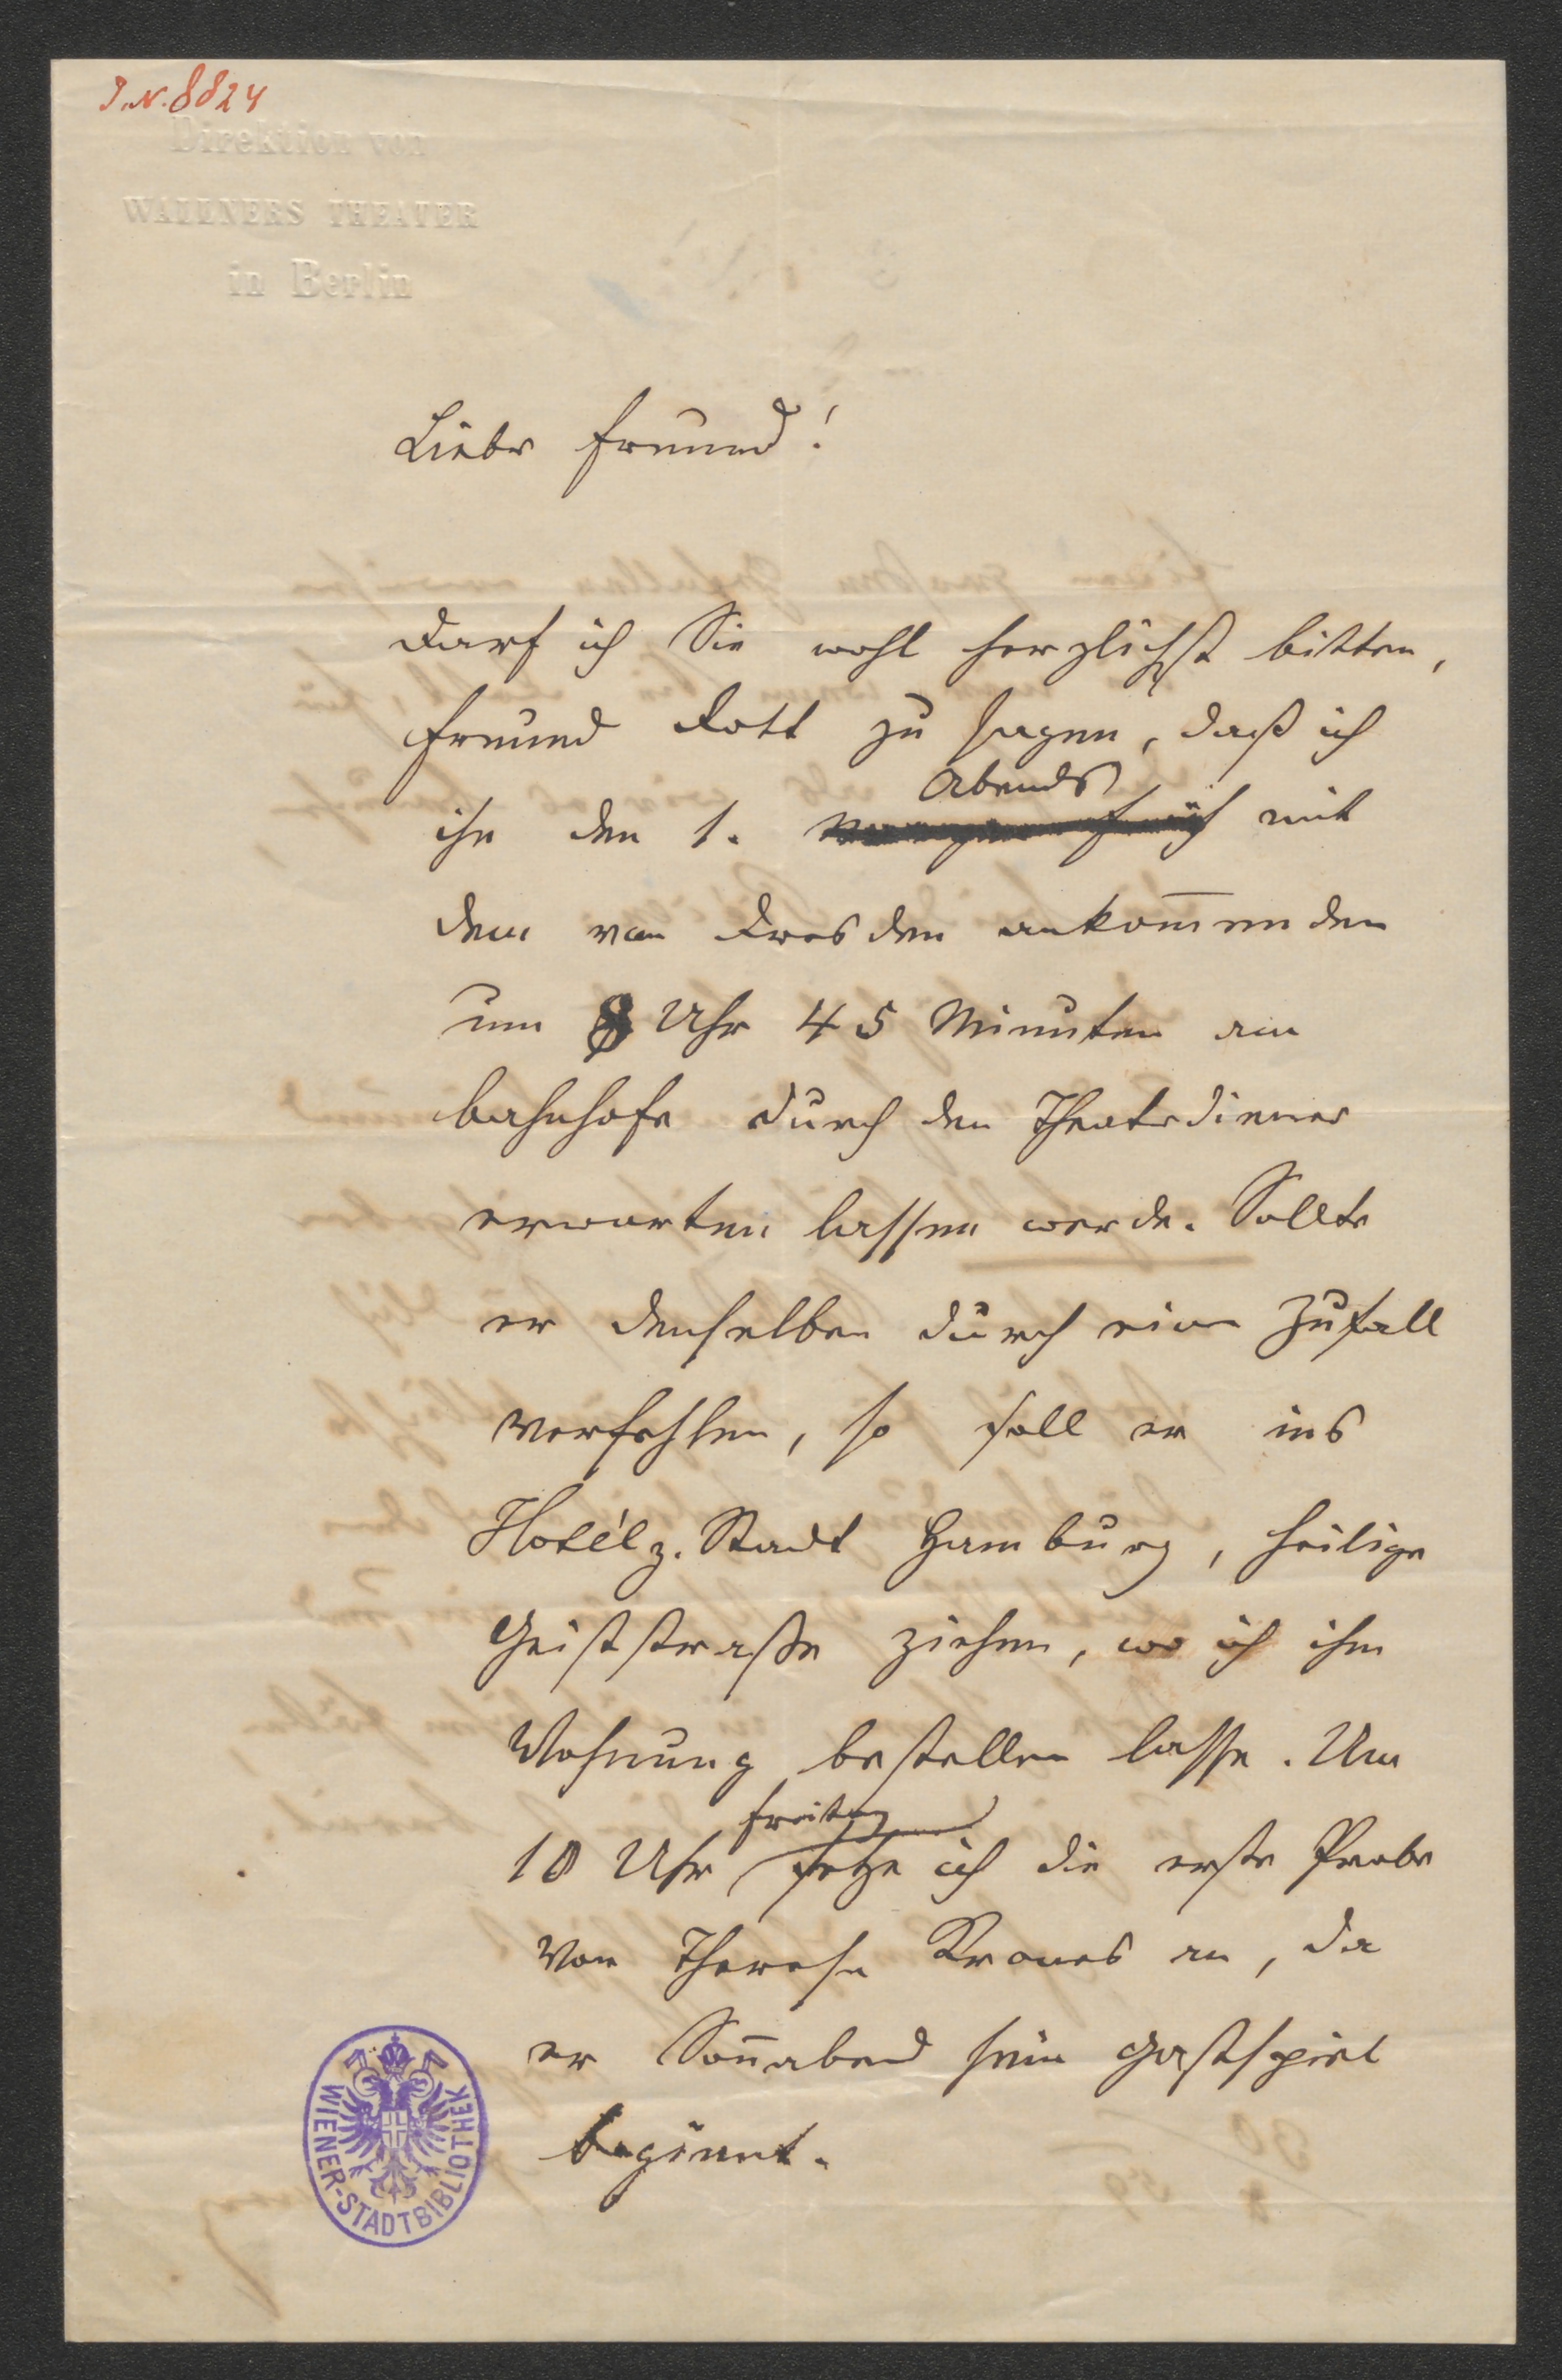 I.N. 8824
Direktion von
WALLNERS THEATER
in Berlin
Lieber Freund!
Darf ich Sie wohl herzlichst bitten,
Freund Rott zu sagen, daß ich
ihn den 1. Abends mit
dem von Dresden ankom̅enden
um 8 Uhr 45 Minuten am
Bahnhofe durch den Theaterdiener
erwarten lassen werde. Sollte
er denselben durch einen Zufall
verfehlen, so soll er ins
Hotél z. Stadt Hamburg, heilige
Geiststraße ziehen, wo ich ihm
Wohnung bestellen lasse. Um
10 Uhr Freitag setze ich die erste Probe
von Therese Krones an, da
er Son̅abend sein Gastspiel
beginnt.
WIENER-STADTBIBLIOTHEK